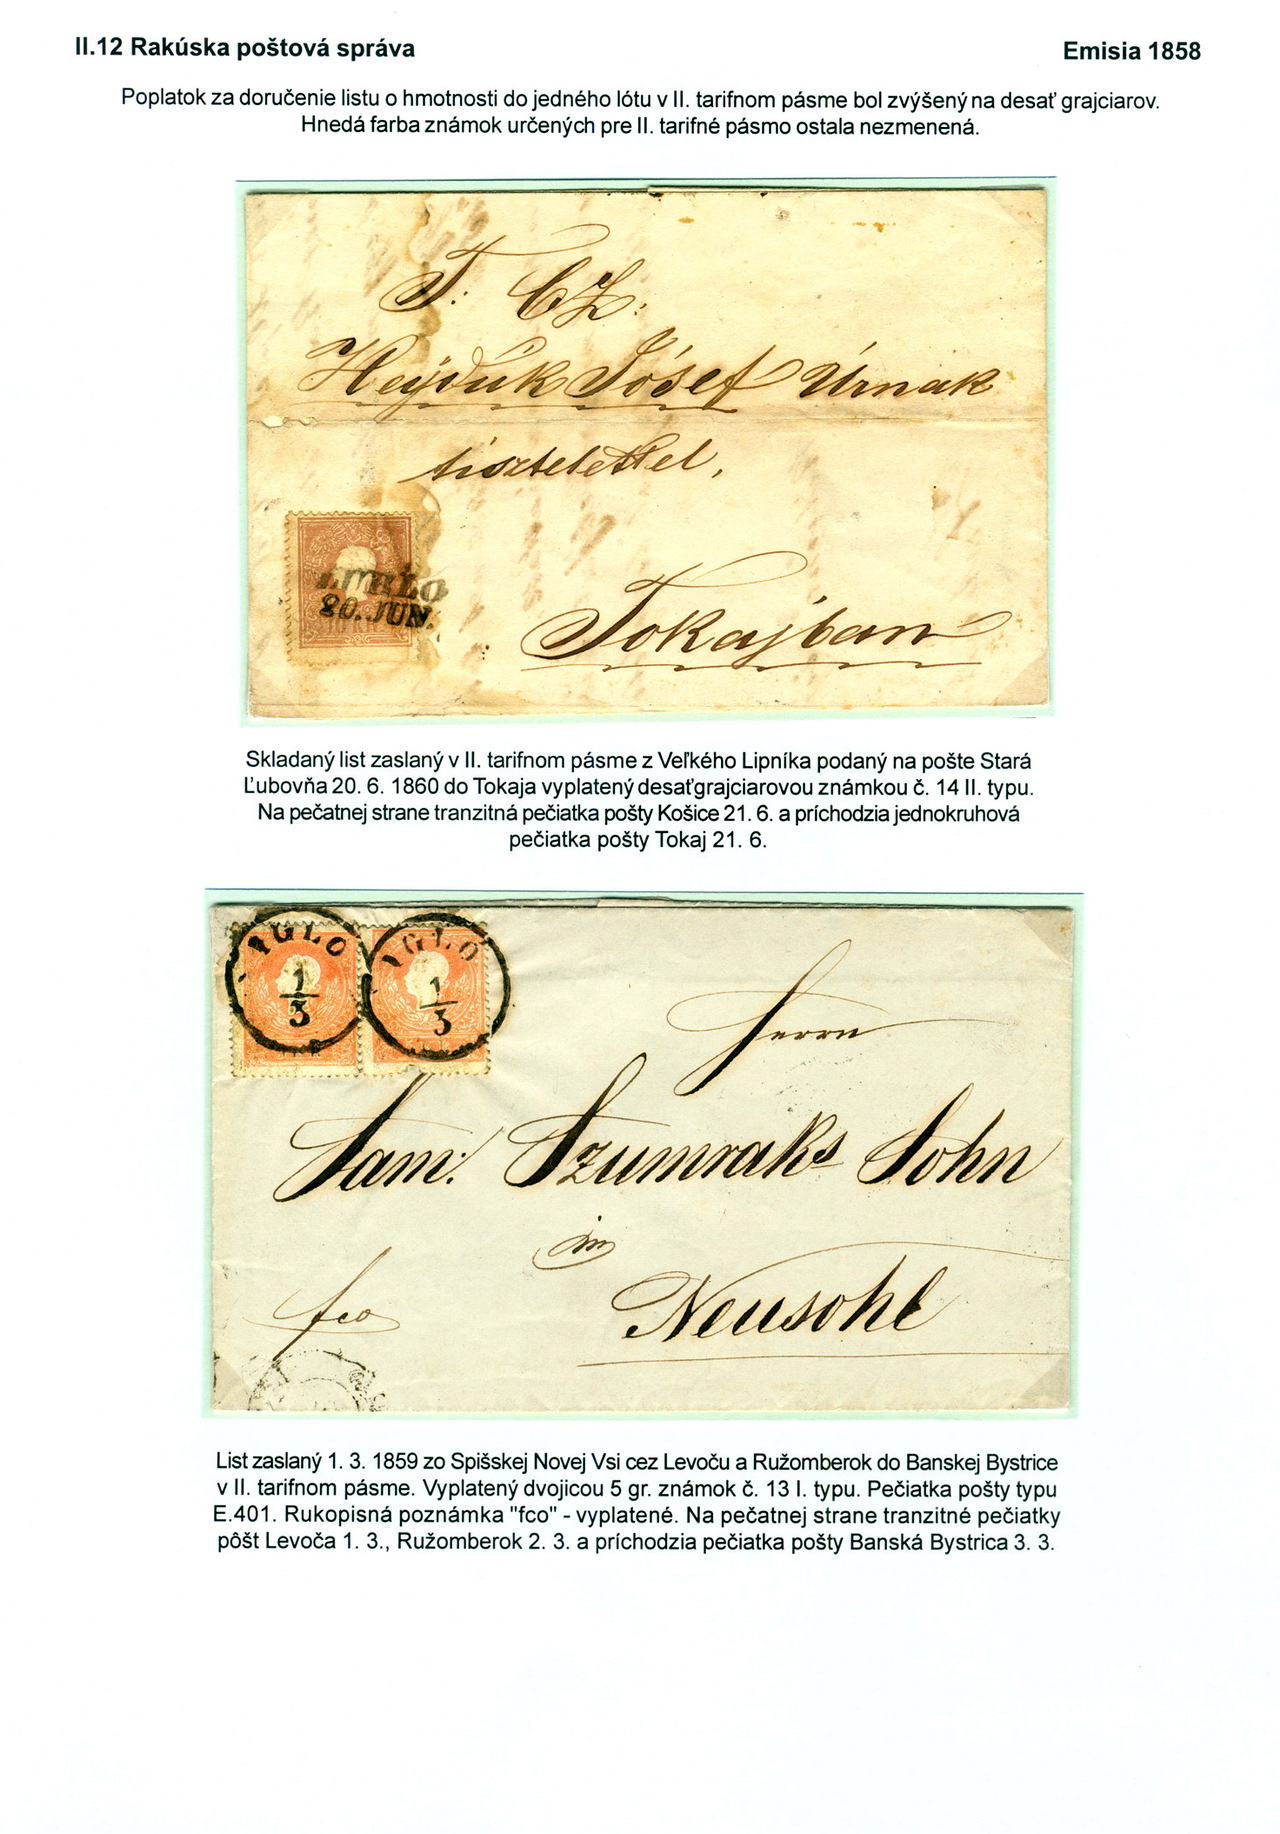 II.12 Rakúska poštová správa
Emisia 1858
Poplatok za doručenie listu o hmotnosti do jedného lótu v II. tarifnom pásme bol zvýšený na desať grajciarov.
Hnedá farba známok určených pre II. tarifné pásmo ostala nezmenená.
T. CZ.
Hejdúk Jósef Úrnak
tisztelettel,
LUBLO
20. JUN.
Tokajban
Skladaný list zaslaný v II. tarifnom pásme z Veľkého Lipníka podaný na pošte Stará
Ľubovňa 20. 6. 1860 do Tokaja vyplatený desaťgrajciarovou známkou č. 14 II. typu.
Na pečatnej strane tranzitná pečiatka pošty Košice 21. 6. a príchodzia jednokruhová
pečiatka pošty Tokaj 21. 6.
IGLO
1
3
IGLO
1
3
Herrn
Sam: Szumraks Sohn
in
Neusohl
fco
List zaslaný 1. 3. 1859 zo Spišskej Novej Vsi cez Levoču a Ružomberok do Banskej Bystrice
v II. tarifnom pásme. Vyplatený dvojicou 5 gr. známok č. 13 I. typu. Pečiatka pošty typu
E.401. Rukopisná poznámka "fco" - vyplatené. Na pečatnej strane tranzitné pečiatky
pôšt Levoča 1. 3., Ružomberok 2. 3. a príchodzia pečiatka pošty Banská Bystrica 3. 3.